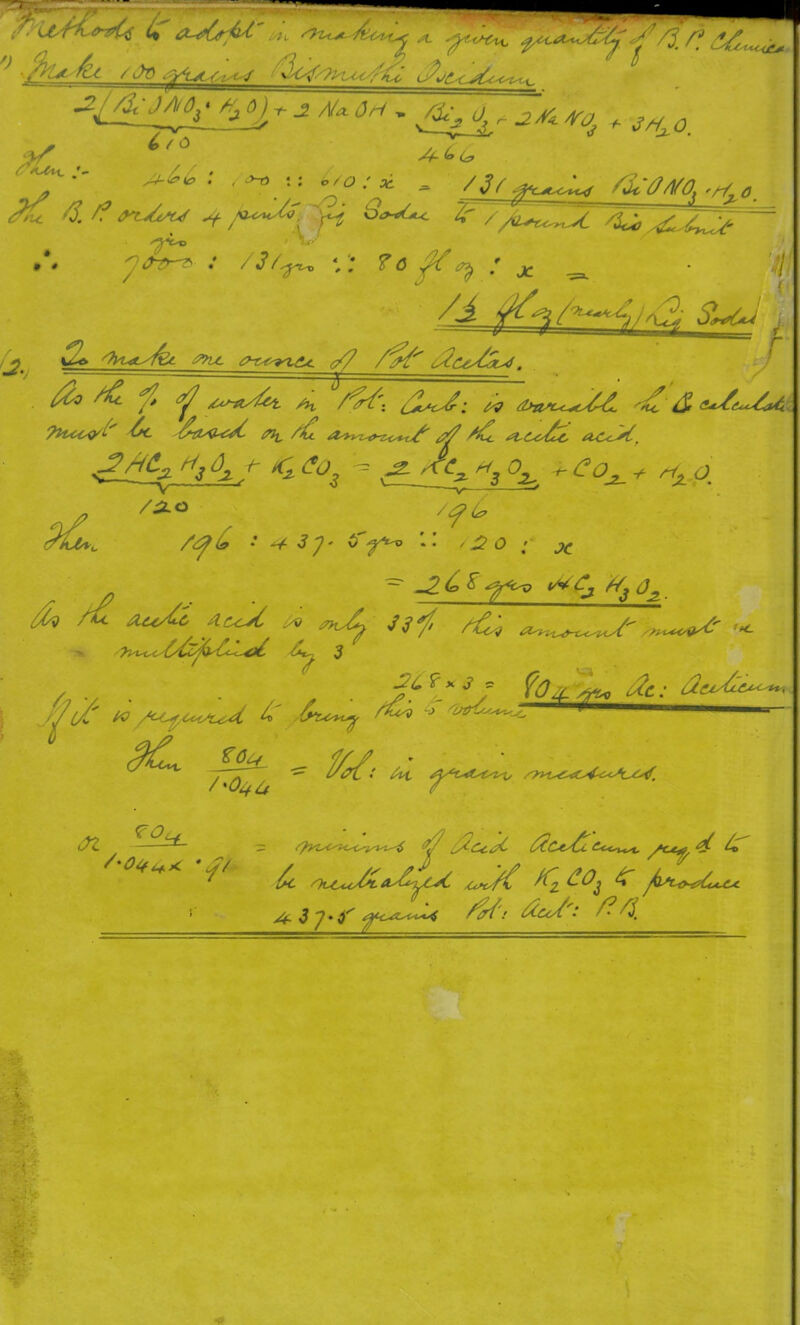 Methods to adopt in making a given quantity of B.P. Chemica
1) Make 100 grains Bismuthi Oxidum.
2(BiONO3· H2O) + 2 NaOH = Bi2O3 + 2NaNO3 + 3H2O.
610 466
Then :- 466 : 100 :: 610 : x = 131 grains BiONO3·H2O.
The B.P. orders 4 pints Liq Sodae to 1 pound Bis Subnit
grs
∴ 7000 : 131 grs :: 80 fl oz : x =
1½ fl oz (nearly) Liq Sodae
2.) To make one ounce of Pot Acetas.
As the % of water in Pot: Carb: is variable the calculat
must be based on the amount of the acetic acid.
2HC2H3O2 + K2CO3 = 2 KC2H3O2 + CO2 + H2O.
120 196
Then 196 : 437.5 grs :: 120 : x
= 268 grs HC2H3O2.
As the acetic acid is only 33% this amount must be
multiplied by 3
268 × 3 = 804 grs Ac: Aceticum
If it is required to bring this to volume
Then 804/1.044 = Vol: in grain measures.
or 804/1.044 × .91 = minims of Acid Aceticum reqd to
be neutralized with K2CO3 to produce
437.5 grains Pot: Acet: P.B.